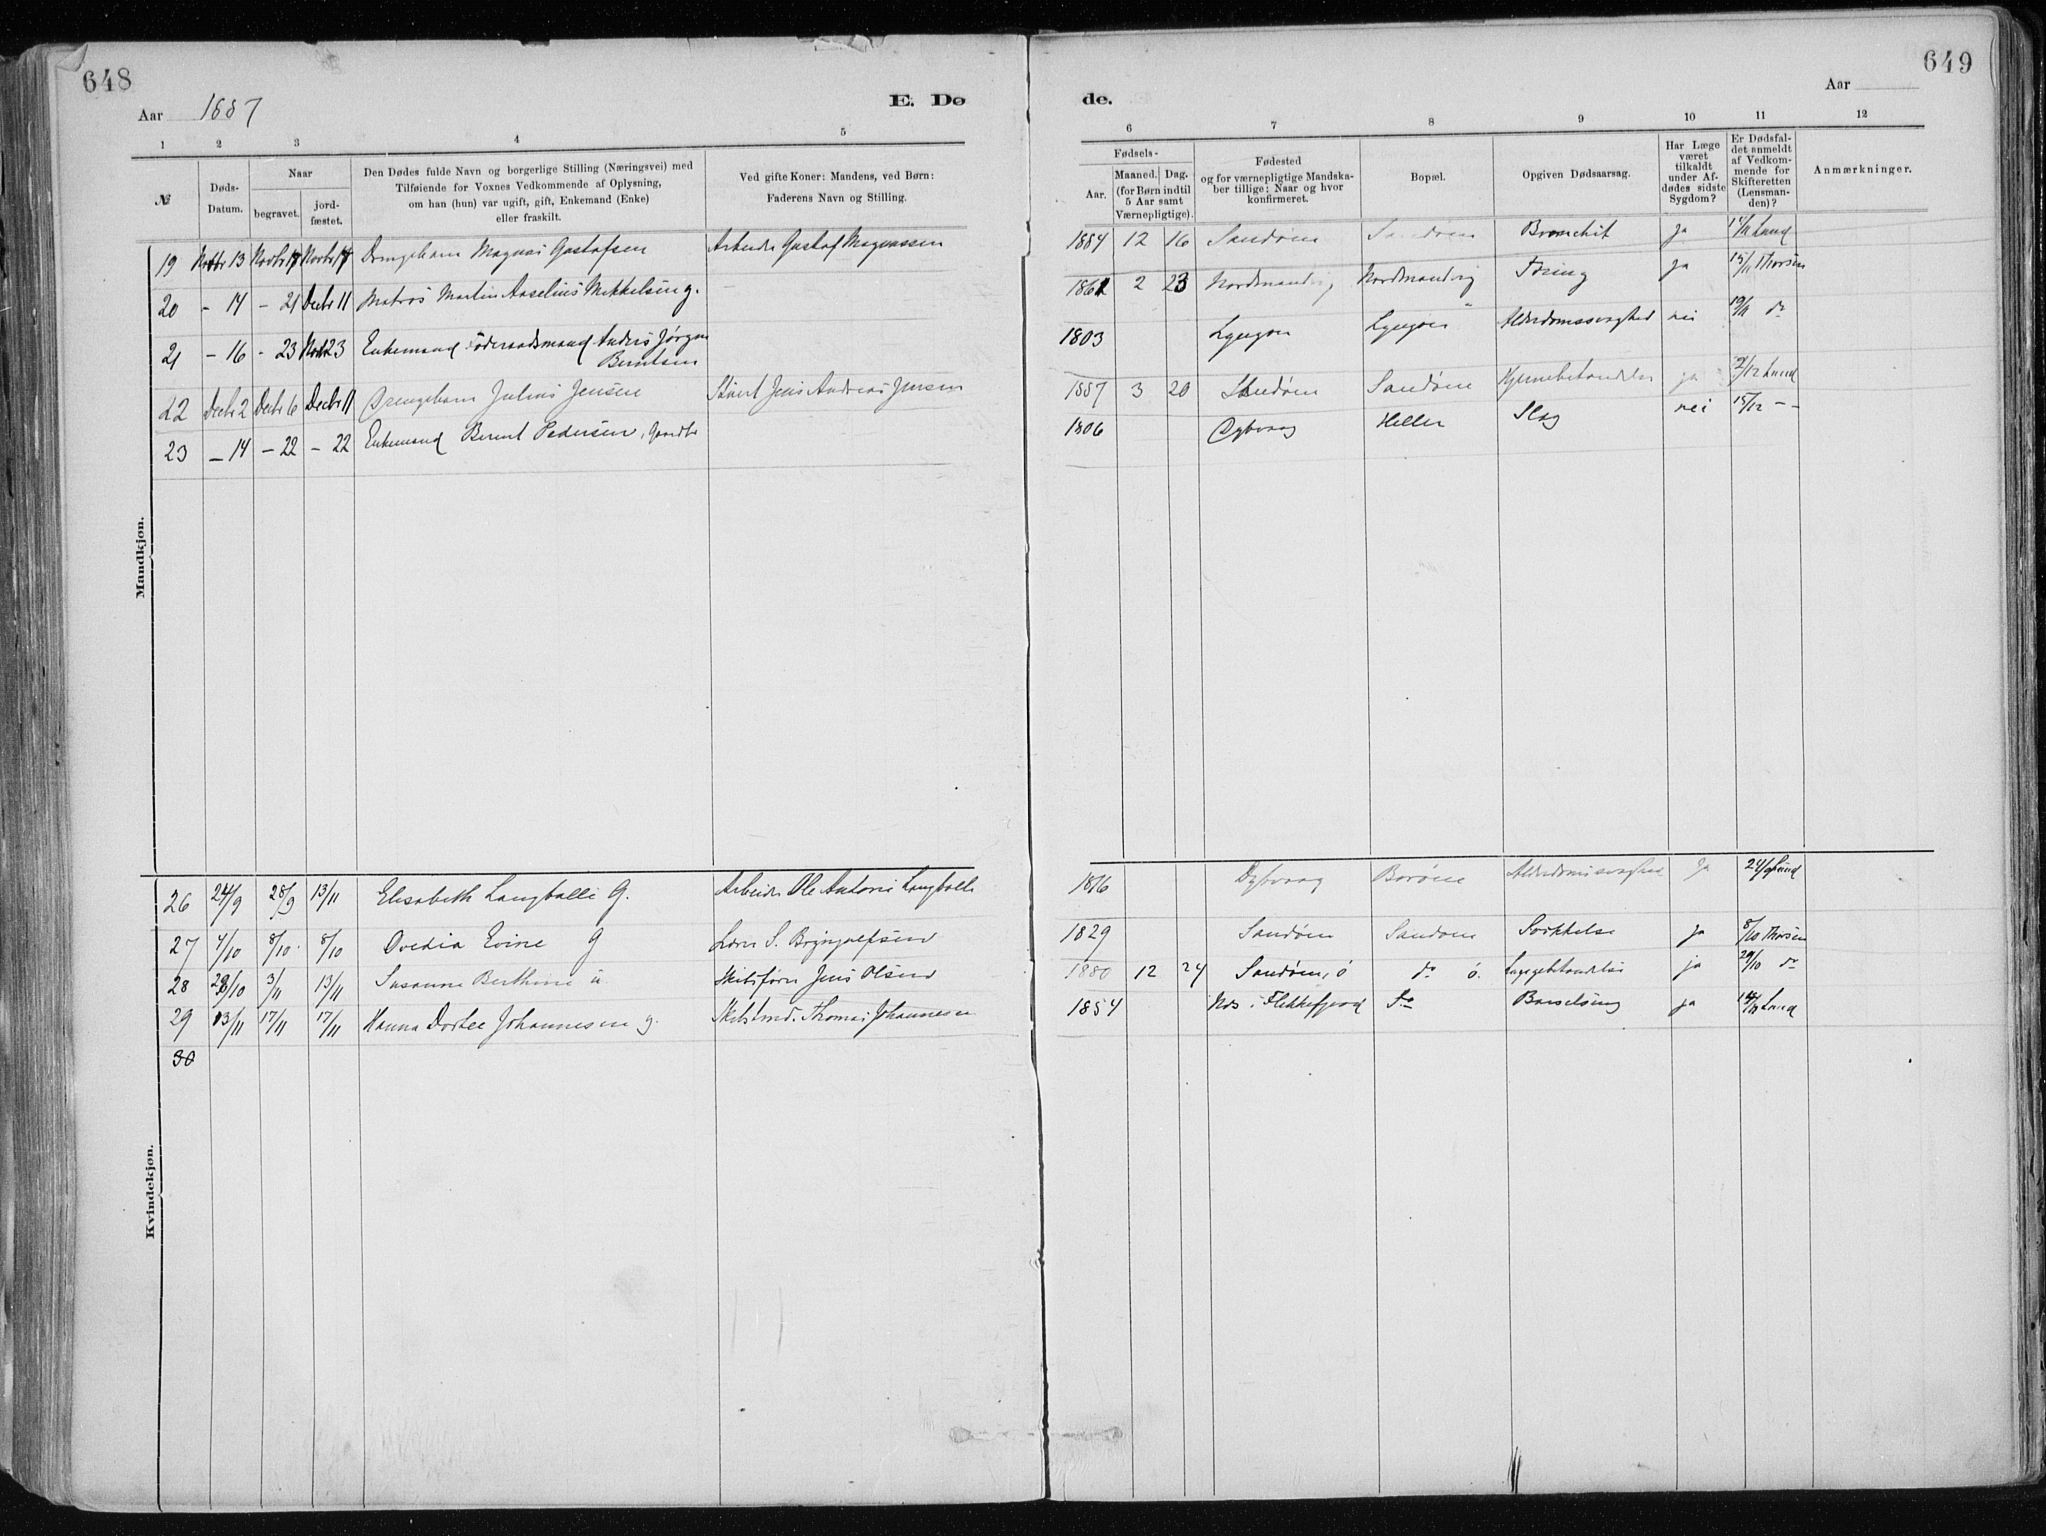 648
649
Aar 1887
E. Dø
de.
Aar
1 2 3 4 5 6 7 8 9 10 11 12
№
Døds-Datum.
Naar
begravet.
jord-fæstet.
Den Dødes fulde Navn og borgerlige Stilling (Næringsvei) med
Tilføiende for Voxnes Vedkommende af Oplysning,
om han (hun) var ugift, gift, Enkemand (Enke)
eller fraskilt.
Ved gifte Koner: Mandens, ved Børn:
Faderens Navn og Stilling.
Fødsels-
Aar.
Maaned. Dag.
(for Børn indtil
5 Aar samt
Værnepligtige).
Fødested
og for værnepligtige Mandska-
ber tillige: Naar og hvor
konfirmeret.
Bopæl.
Opgiven Dødsaarsag.
Har Læge
været
tilkaldt
under Af-
dødes sidste
Sygdom?
Er Dødsfal-
det anmeldt
af Vedkom-
mende for
Skifteretten
(Lensman-
den)?
Anmærkninger.
Mandkjøn.
19 Novbr 13 Novbr 17 Novbr 17 Drengebarn Magnus Gustafsen Arbeider Gustaf Magnussen 1884 12 16 Sandøen Sandøen Bronchit ja Lund
20 - 14 - 21 Decbr 11 Matros Martin Anselius Mikkelsen g. - 1862 2 23 Nordmandvig Nordmandvig ja 15/11 Thorsen
21 - 16 - 23 Novbr 23 Enkemand Føderaadsmand Anders Jørgen
Berntsen 1803 Lyngør Lyngør Alderdomssvaghed nei 19/11 do
22 Decbr 2 Decbr 6 Decbr 11 Drengebarn Julius Jensen Jens Andreas Jensen 1887 3 20 Sandøen Sandøen Hjernebetændelse ja Lund
23 - 14 - 22 - 22 Enkemand Berent Pedersen, Gaardbr 1806 Dybvaag Heller Slag nei 15/12 - -
Kvindekjøn.
26 24/9 28/9 13/11 Elisabeth Langballe G. Arbeider Ole Antoni Langballe 1816 Dybvaag Borøen Alderdomssvaghed ja Lund
27 4/10 8/10 8/10 Ovedia Evine G Lars S. Brynjulfsen 1829 Sandøen Sandøen ja 8/10 Thorsen
28 3/11 13/11 Susanne Berthine u. Skibsfører Jens Olsen 1880 12 24 Sandøen, ø do ø. Lungebetændelse ja do
29 13/11 17/11 17/11 Hanna Dortee Johannesen g. Skibstmd. Thomas Johannesen 1854 Nes i Flekkefjord Do Barselseng ja Lund
30